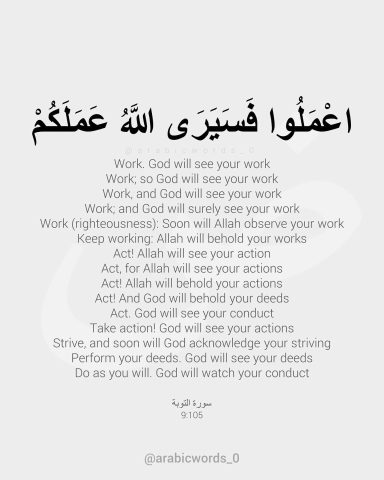 اعْمَلُوا فَسَيَرَى اللَّهُ عَمَلَكُمْ
@arabicwords_0
Work. God will see your work
Work; so God will see your work
Work, and God will see your work
Work; and God will surely see your work
Work (righteousness): Soon will Allah observe your work
Keep working: Allah will behold your works
Act! Allah will see your action
Act, for Allah will see your actions
Act! Allah will behold your actions
Act! And God will behold your deeds
Act. God will see your conduct
Take action! God will see your actions
Strive, and soon will God acknowledge your striving
Perform your deeds. God will see your deeds
Do as you will. God will watch your conduct
سورة التوبة
9:105
@arabicwords_0